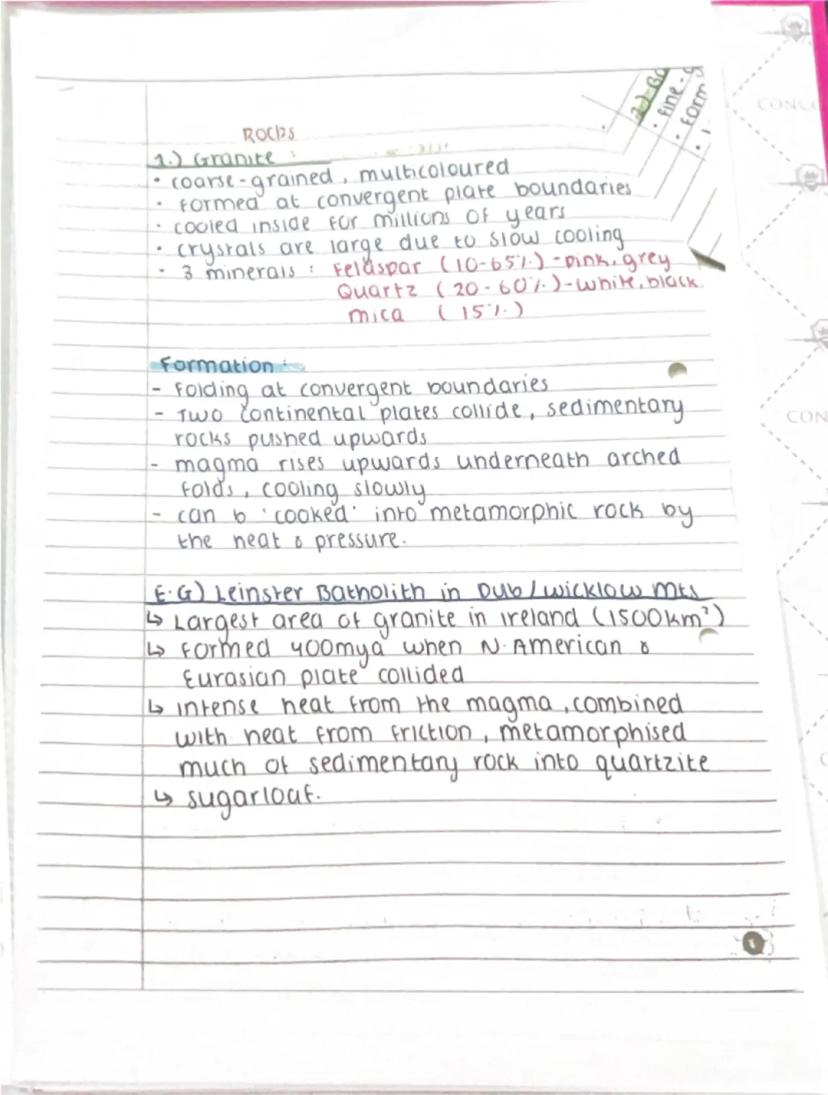 Rocks
1.) Granite :
• coarse-grained, multicoloured
• formed at convergent plate boundaries
• cooled inside for millions of years
• crystals are large due to slow cooling
• 3 minerals : Feldspar (10-65%) - pink, grey
Quartz (20-60%) - white, black
mica (15%)
Formation :
- Folding at convergent boundaries
- Two continental plates collide, sedimentary
rocks pushed upwards
- magma rises upwards underneath arched
folds, cooling slowly
- can b 'cooked' into metamorphic rock by
the heat & pressure.
E.G) Leinster Batholith in Dub/Wicklow Mts
↳ Largest area of granite in Ireland (1500km²)
↳ Formed 400mya when N.American &
Eurasian plate collided
↳ intense heat from the magma, combined
with heat from friction, metamorphised
much of sedimentary rock into quartzite
↳ sugarloaf.
2.) Ba
• fine-g
• form
1
CON
CON